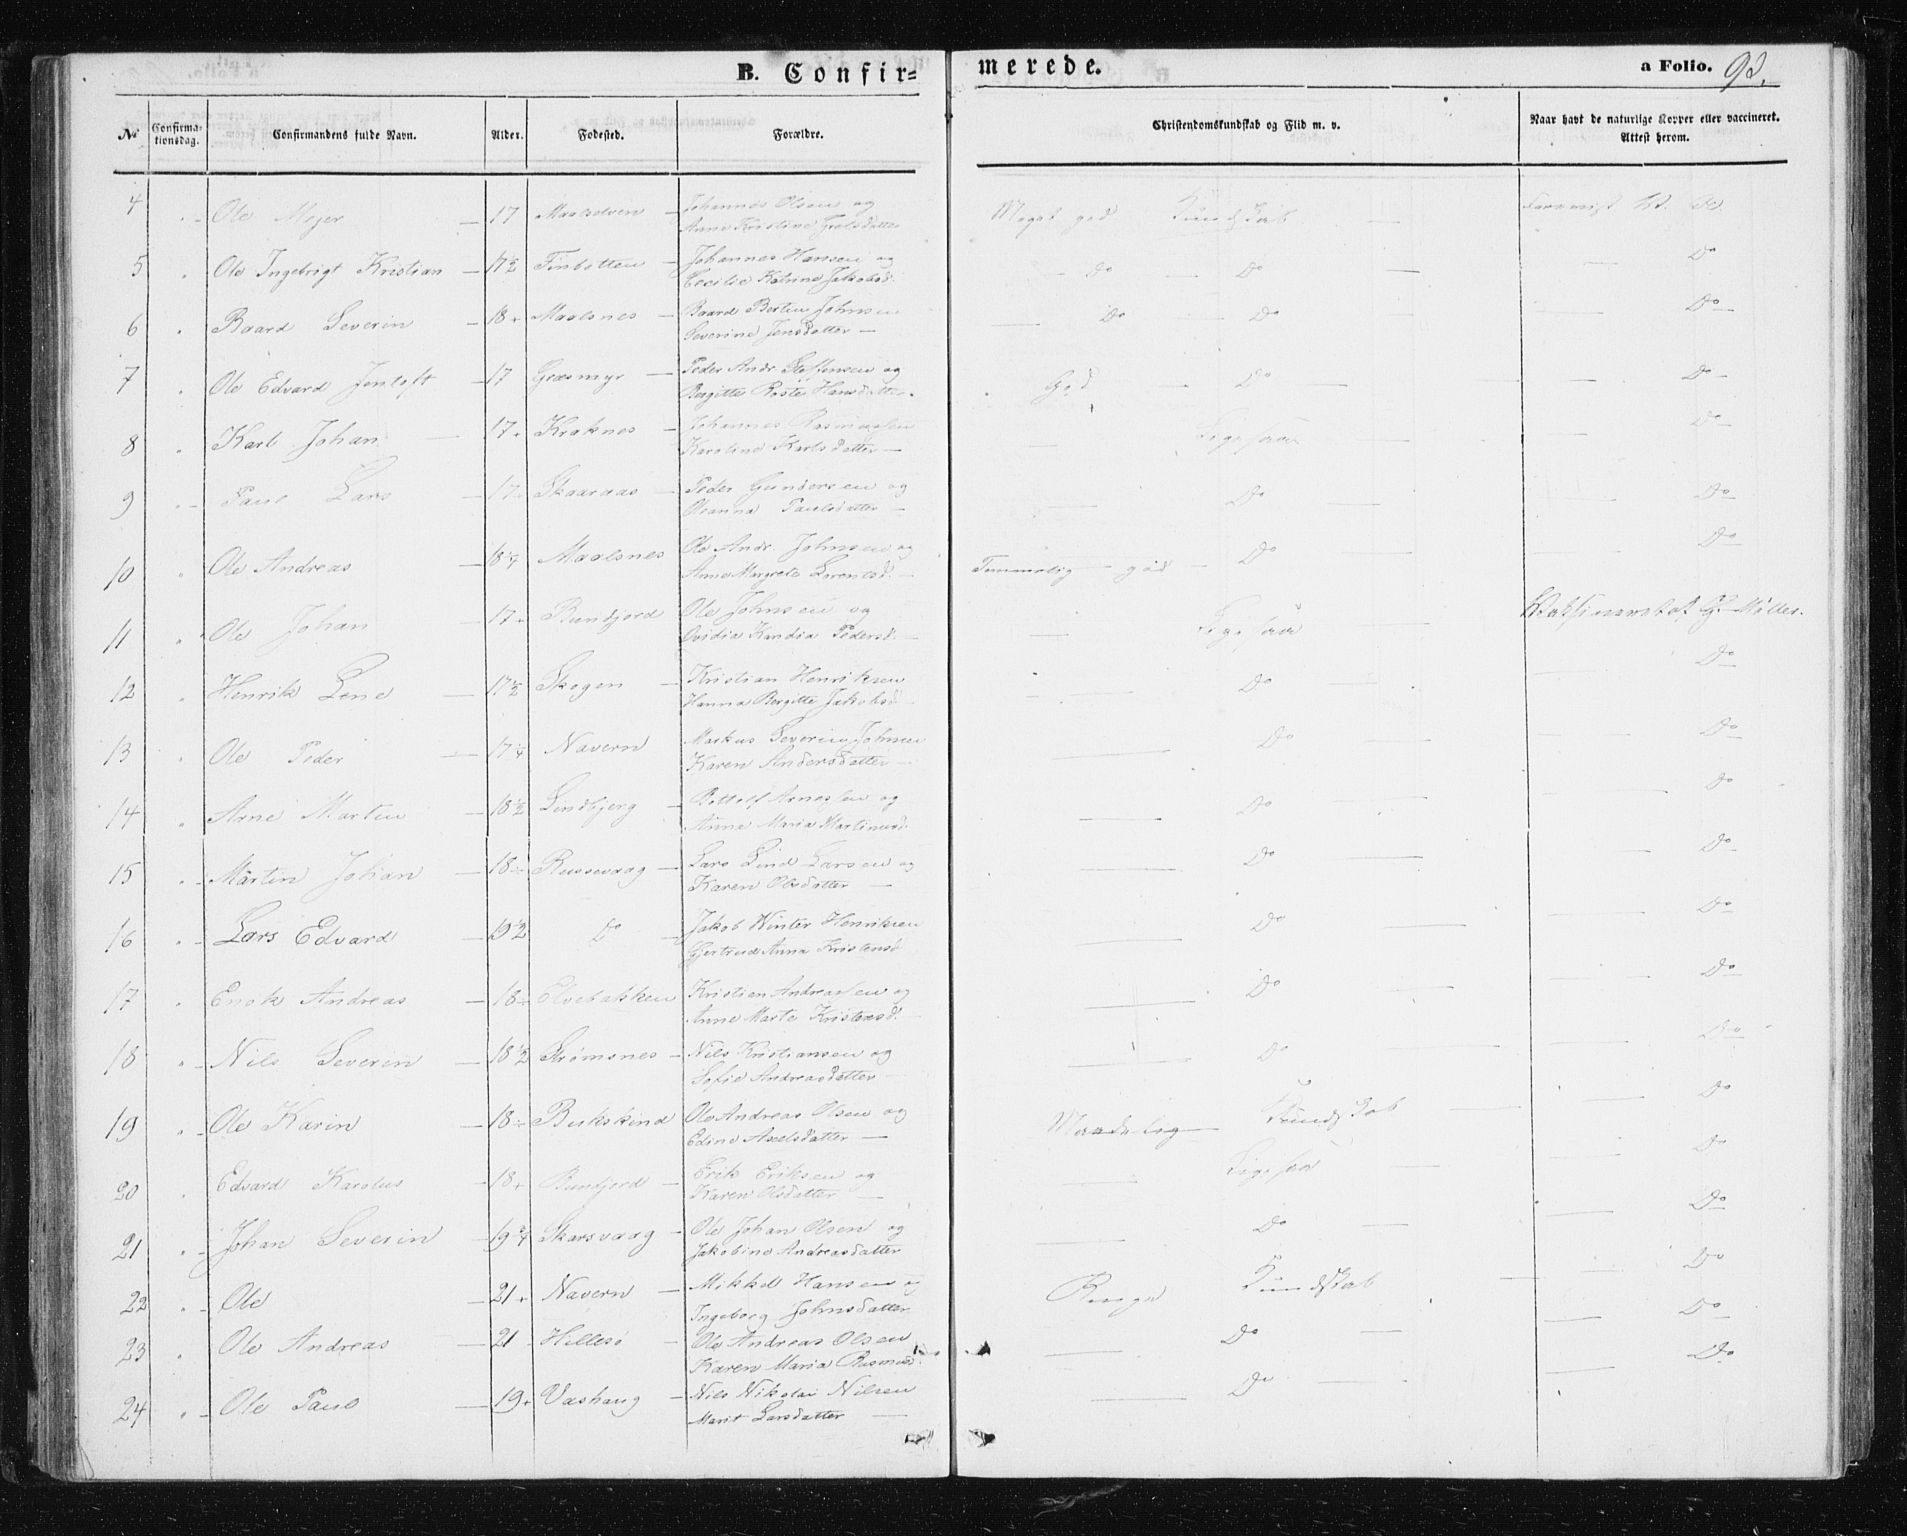 B. Confir=
merede.
a Folio. 98.
No Confirma-tionsdag. Confirmandens fulde Navn. Alder. Fødested. Forældre. Christendomskundskab og Flid m. v. Naar havt de naturlige Kopper eller vaccineret. Attest herom.
4 " Ole Mejer — 17 Maalselven — Johannes Olsen og
Anne Kristine
Meget god Kundskab —
5 " Ole Ingebrigt Kristian — 17½ Finbotten — Johannes Hansen og
Cecilie Katrine Jakobsd.
— Do — Do — — Do
6 " Baard Severin — 18 Maalsnes — Baard Bertin Johnsen
Severine Jensdatter —
— Do — Do — Do
7 " Ole Edvard Jentoft — 17 Græsmyr — Peder Andr. Steffensen og
Bergitte Hansdatter.
God — Do — — Do
8 " Karl Johan — 17 Kraknes — Johannes Rasmussen
Karoline Karlsdatter —
— Ligesaa — Do
9 " Paul Lars — 17 Skaaraas — Peder Gundersen og
Oleanna Paulsdatter —
— Do — — Do
10 " Ole Andreas — 18¼ Maalsnes Ole Andr. Johnsen og
Anne Margrete Lorentsd. —
Temmelig god — Do — Do
11 " Ole Johan 17 Rundfjord Ole Johnsen og
Ovidia Kandia Pedersd. —
— Ligesaa Møller.
12 " Henrik Lene — 17½ Skogen — Kristian Henriksen
Hanna Bergitte Jakobsd.
— Do — Do
13 " Ole Peder — 17¼ Navern Markus Severin Johnsen
Karen Andersdatter —
— Do — Do
14 " Arne Martin — 18½ Lindbjerg — Bottolf Arnessen og
Anne Maria Martinusd.
— Do — Do
15 " Martin Johan — 18 Russevaag — Lars Lind Larsen og
Karen Olsdatter —
— Do — Do
16 " Lars Edvard — 19½ Do — Jakob Winter Henriksen
Gjertrud Anna Kristensd.
— Do — Do
17 " Enok Andreas — 18 Elvebakken Kristian Andreassen og
Anne Marte Kristensd. —
— Do — Do
18 " Nils Severin — 18½ Strømsnes — Nils Kristiansen og
Sofie Andreasdatter —
— Do — Do
19 " Ole Karin — 18 Bukskind Ole Andreas Olsen og
Edine Axelsdatter —
Maadelig Kundskab — Do
20 " Edvard Karolus — 18 Rundfjord — Erik Eriksen og
Karen Olsdatter —
— Ligesaa — Do
21 " Johan Severin — 19¾ Skarsvaag — Ole Johan Olsen og
Jakobine Andreasdatter
— Do — Do
22 " Ole — 21 Navern — Mikkel Hansen og
Ingeborg Johnsdatter
Ringe Kundskab — Do
23 " Ole Andreas — 21 Hillesø — Ole Andreas Olsen
Karen Maria Rasmusd.
— Do — Do
24 " Ole Paul — 19 Vashaug — Nils Nikolai Nilsen
Marit Larsdatter —
— Do — Do